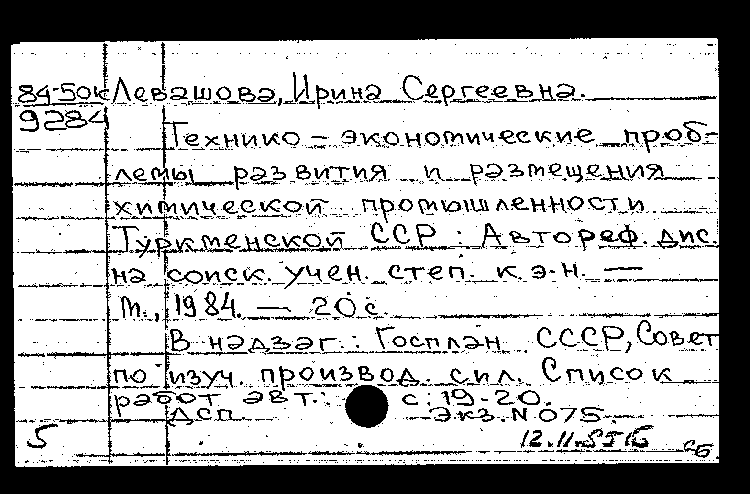 84-50к Левашова, Ирина Сергеевна.
9284
Технико-экономические проб-
лемы развития и размещения
химической промышленности
Туркменской ССР : Автореф. дис.
на соиск. учен. степ. к.э.н. —
М., 1984. — 20 с.
В надзаг.: Госплан СССР, Совет
по изуч. производ. сил. Список
работ авт.: с. 19-20.
ДСП. Экз. N 075.
5 12.11.85
сб